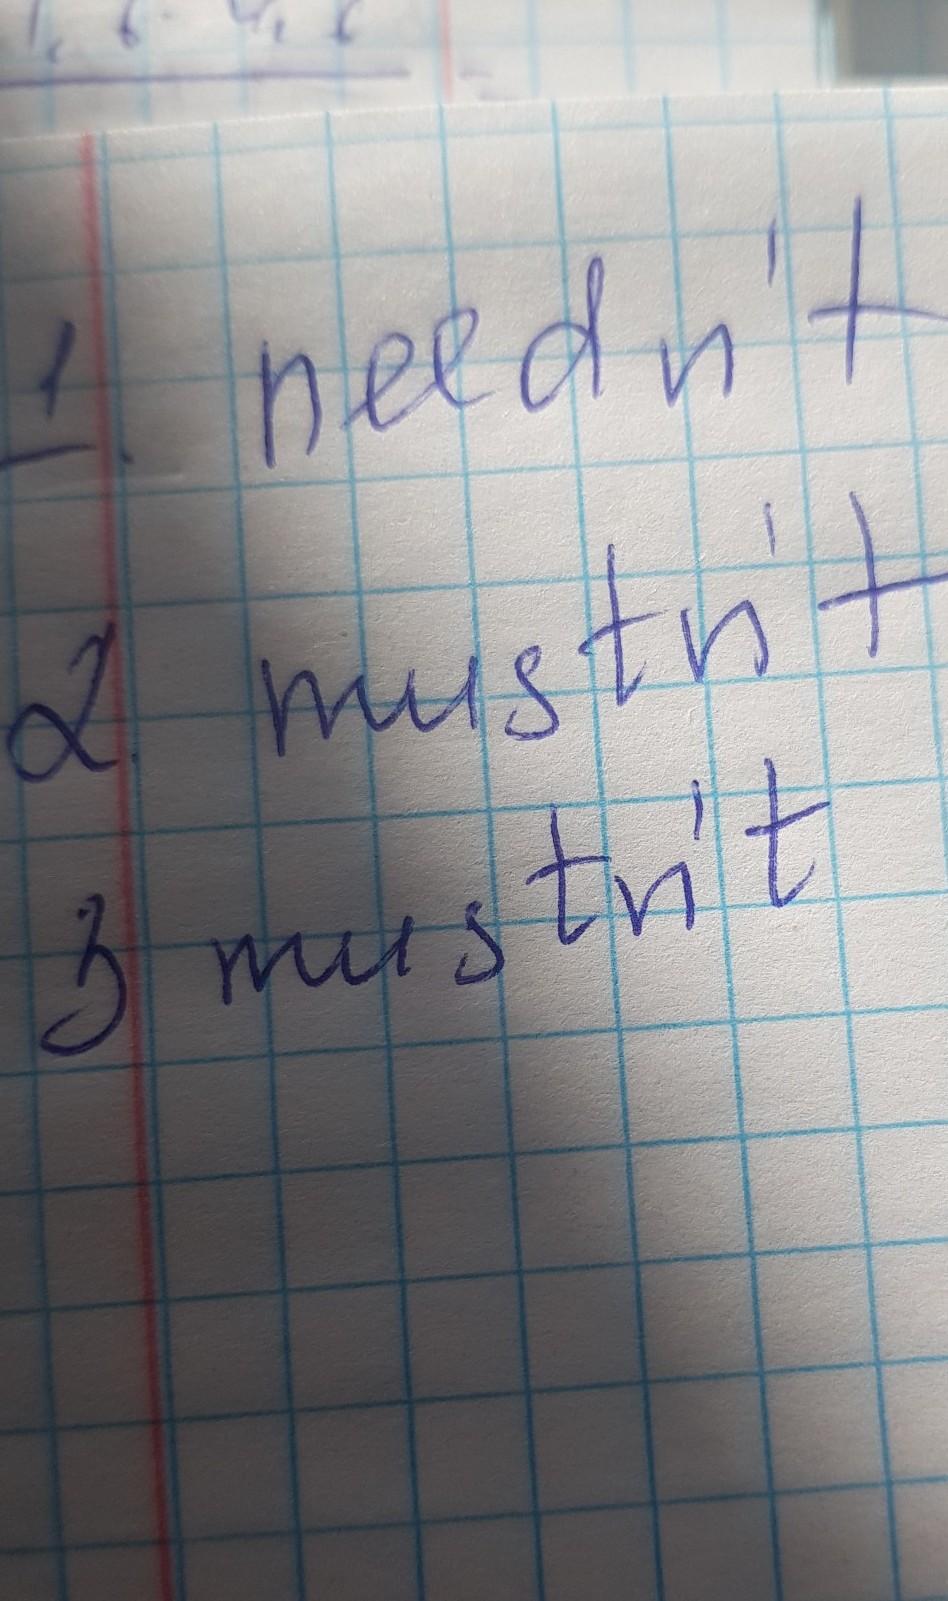 1. needn't
2. mustn't
3 mustn't